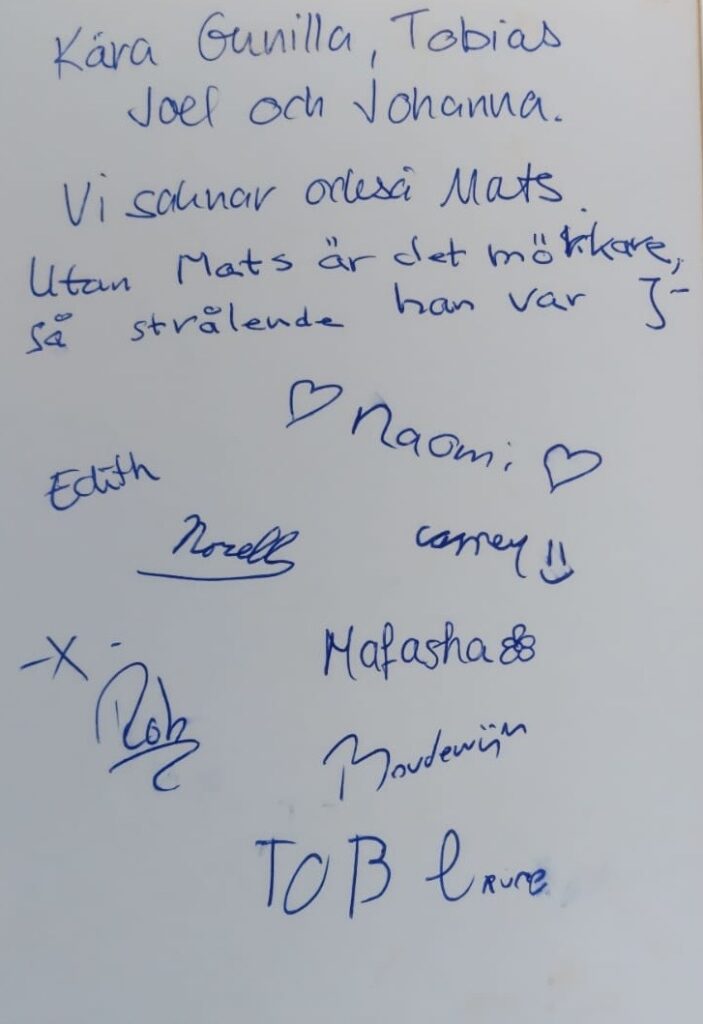 Kära Gunilla, Tobias
Joel och Johanna.
Vi saknar också Mats.
Utan Mats är det mörkare,
så strålende han var
Naomi
Edith
Norell
Mafasha
-X-
Rob
Boudewijn
TOB